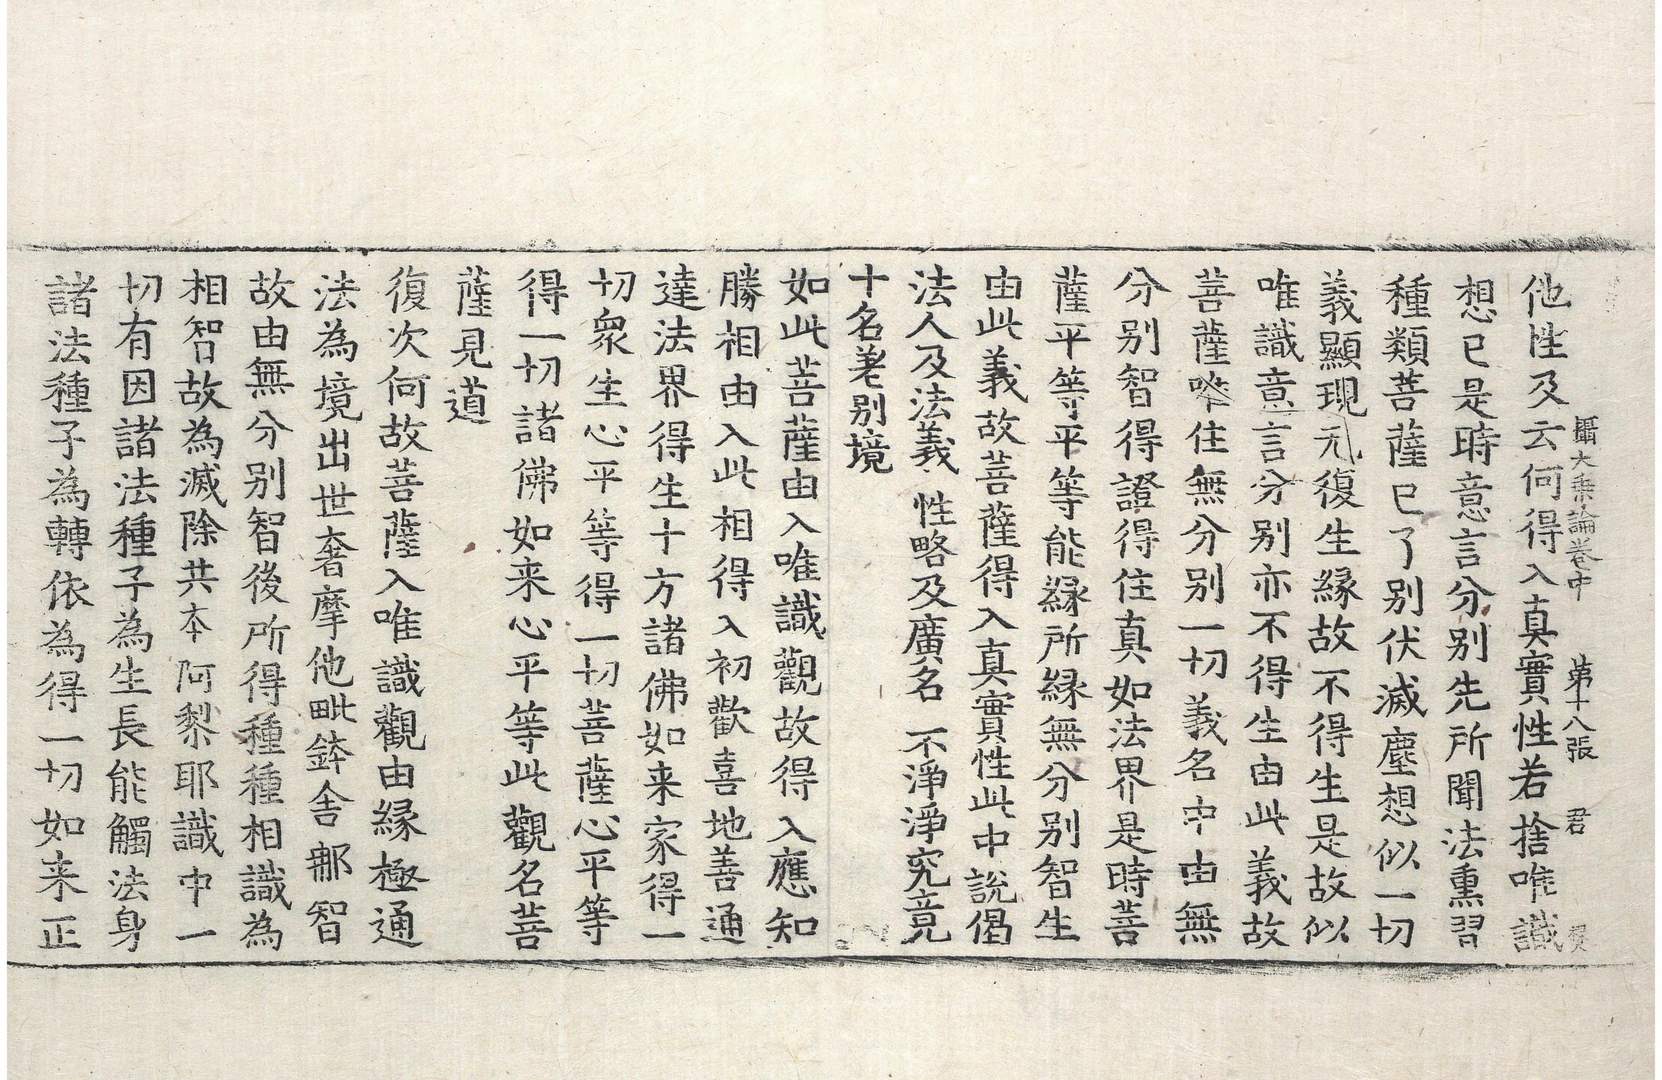 攝大乘論卷中 第十八張 君
他性及云何得入真實性若捨唯識
想已是時意言分別先所聞法熏習
種類菩薩已了別伏滅塵想似一切
義顯現无復生緣故不得生是故似
唯識意言分別亦不得生由此義故
菩薩唯住無分別一切義名中由無
分別智得證得住真如法界是時菩
薩平等平等能緣所緣無分別智生
由此義故菩薩得入真實性此中說偈
法人及法義 性略及廣名 不淨淨究竟
十名差別境
如此菩薩由入唯識觀故得入應知
勝相由入此相得入初歡喜地善通
達法界得生十方諸佛如来家得一
切眾生心平等得一切菩薩心平等
得一切諸佛如来心平等此觀名菩
薩見道
復次何故菩薩入唯識觀由緣極通
法為境出世奢摩他毗鉢舍那智
故由無分別智後所得種種相識為
相智故為滅除共本阿梨耶識中一
切有因諸法種子為生長能觸法身
諸法種子為轉依為得一切如来正